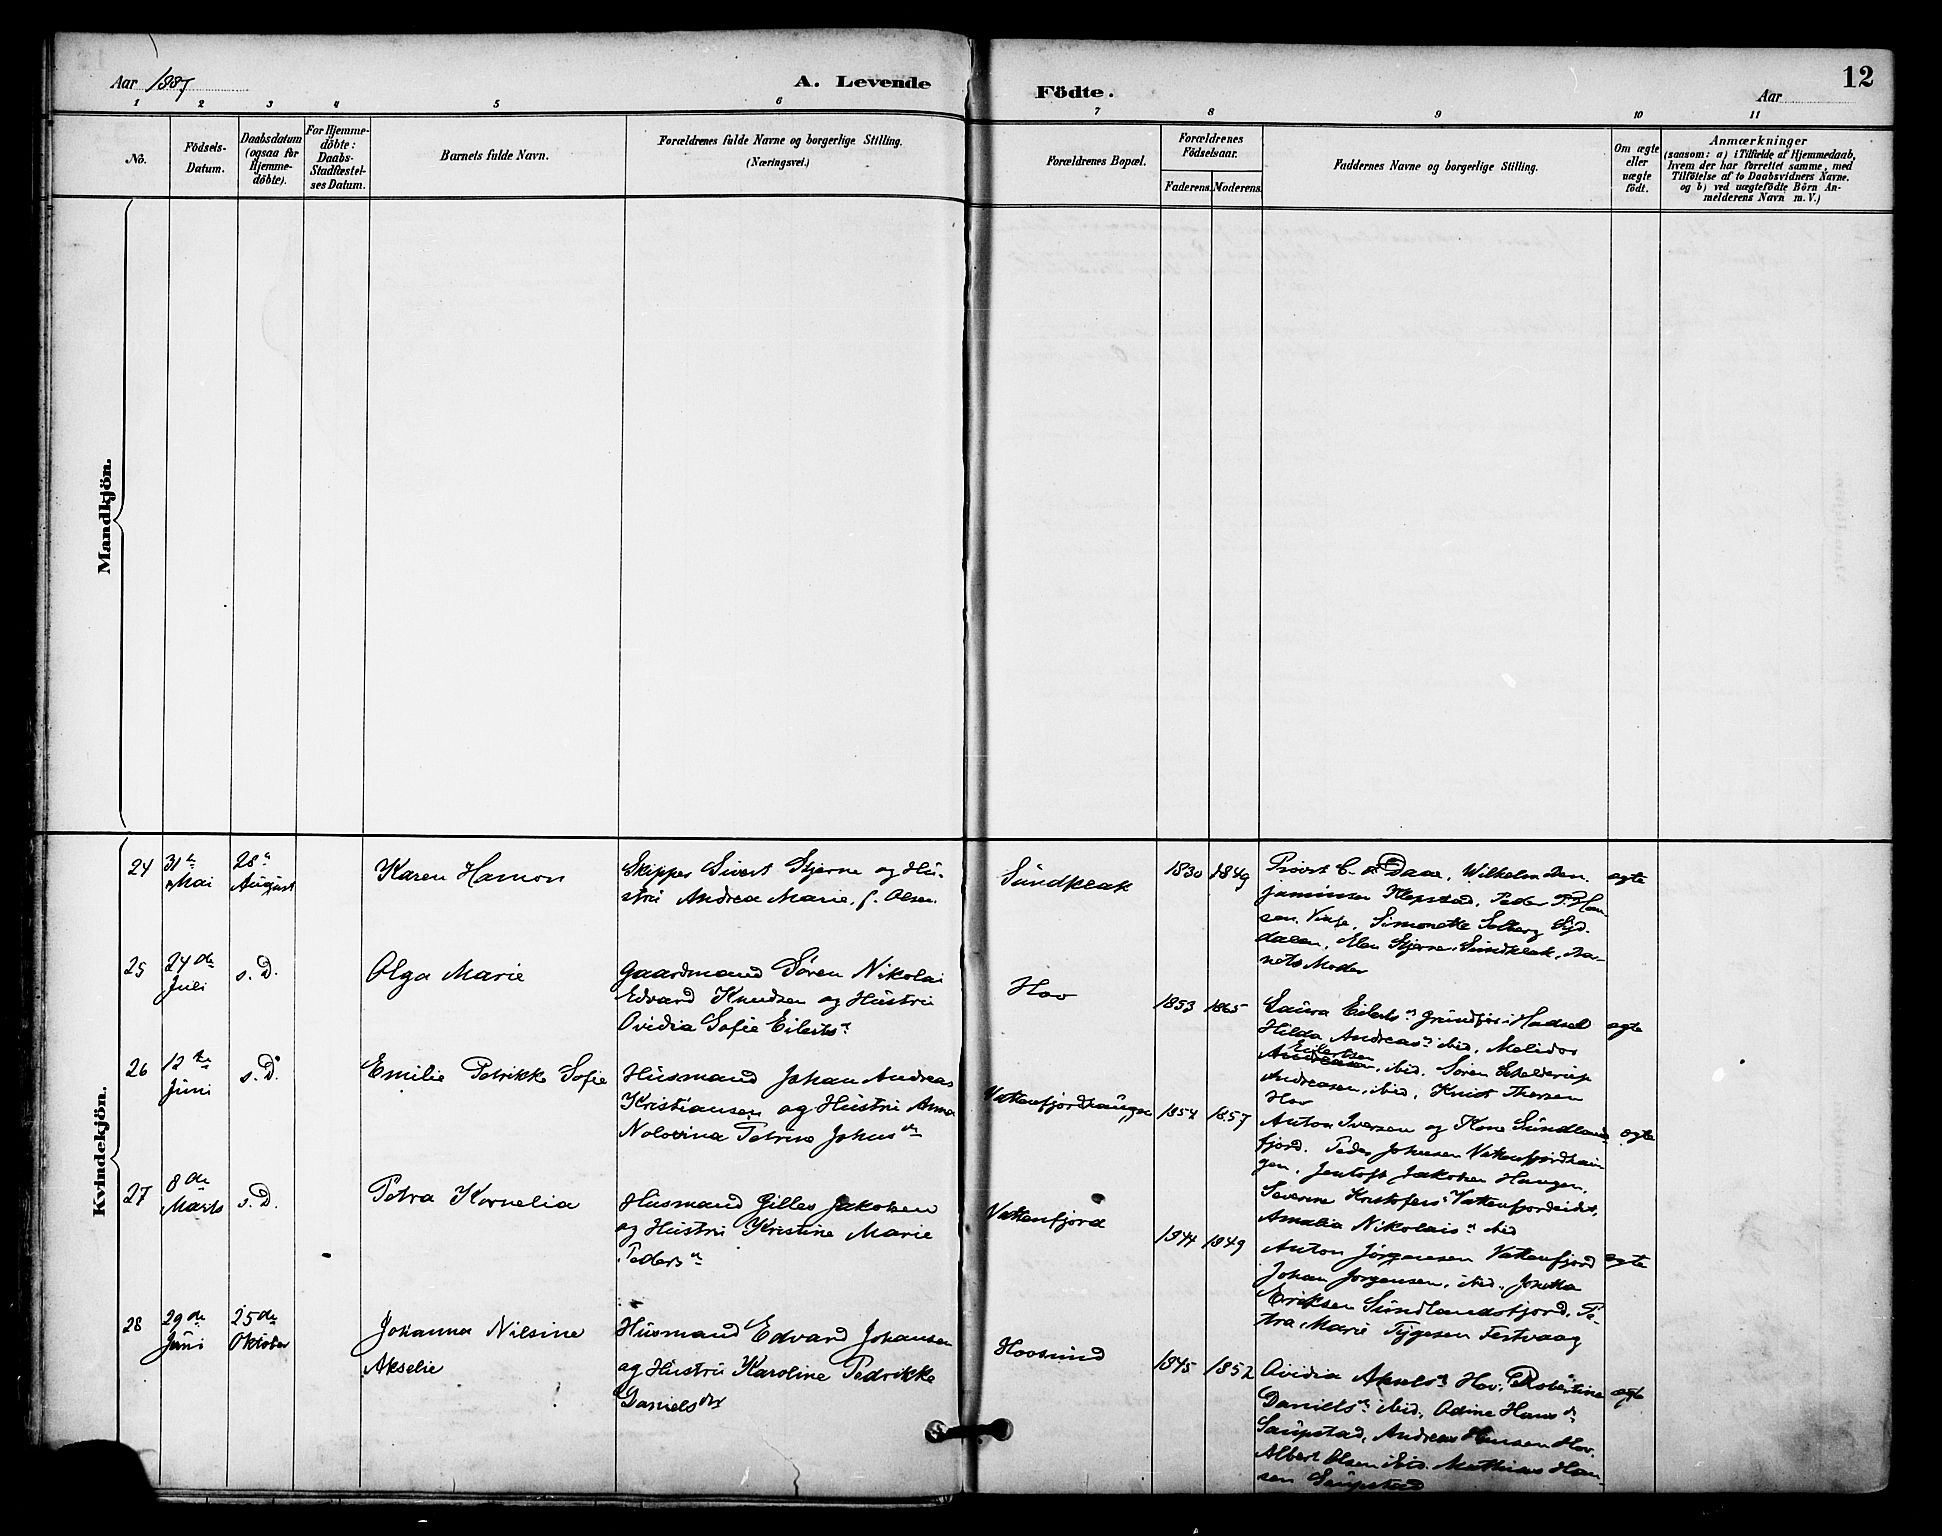 Aar 1887
A. Levende
Födte.
Aar
12
1 2 3 4 5 6 7 8 9 10 11
No.
Födsels-
Datum.
Daabsdatum
(ogsaa for
Hjemme-
døbte).
For Hjemme-
døbte:
Daabs-
Stadfæstel-
ses Datum.
Barnets fulde Navn.
Forældrenes fulde Navne og borgerlige Stilling.
(Næringsvei.)
Forældrenes Bopæl.
Forældrenes
Födselsaar.
Faderens. Moderens.
Faddernes Navne og borgerlige Stilling.
Om ægte
eller
uægte
født.
Anmærkninger
(saasom: a) i Tilfælde af Hjemmedaab,
hvem der har forrettet samme, med
Tilföielse af to Daabsvidners Navne.
og b) ved uægtefödte Börn An-
melderens Navn m. V.)
Mandkjön.
Kvindekjön.
24
31te
Mai
28de
August
Karen Hamon
Skipper Sivert Stjerne og Hu-
stru Andrea Marie, f. Olsen
Sundklak
1830 1849
Provst C. Daae, Wilhelm Ben
jaminsen Klepstad, Peder Han
sen, Simonette Solberg Syd
dalen, Elen Stjerne Sundklak, Bar-
nets Moder
ægte
25
24de
Juli
s. D.
Olga Marie
Gaardmand Sören Nikolai
Edvard Knudsen og Hustru
Ovidia Sofie Eilertsdr
Hov
1853 1865
Laura Eilertsdr Grundfør i Hadsel
Hilda Andreasdr ibid, Melidor
Eilertsen
Andreasen, ibid. Sören Schelderup
Andreasen, ibid, Knut Thersen
Hov
ægte
26
12te
Juni
s. D.
Emilie Petrikke Sofie
Husmand Johan Andreas
Kristiansen og Hustru Anna
Nolovina Petrine Johnsdr
Vatenfjordhaugen
1854 1857
Anton Iversen og Kone Sundlands
fjord. Peder Johnsen Vatenfjordhau
gen, Jentoft Jakobsen Haugen,
Severine Kristofersdr Vatenfjordeidet,
Amalia Nikolaisdr ibid
ægte
27
8de
Marts
s. D.
Petra Kornelia
Husmand Gilles Jakobsen
og Hustru Kristine Marie
Pedersdr
Vatenfjord
1844 1849
Anton Jörgensen Vatenfjord
Johan Jorgensen, ibid. Jonetta
Eriksen Sundlandsfjord, Pe-
tra Marie Tygesen Festvaag
ægte
28
29de
Juni
25de
Oktober
Johanna Nilsine
Akselie
Husmand Edvard Johansen
og Hustru Karoline Pedrikke
Danielsdr
Hovsund
1845 1852
Ovidia Akselsdr Hov, Robertine
Danielsdr ibid, Odine Hansdr
Saupstad, Andreas Hansen Hov.
Albert Olsen ibid. Mathias Han
sen Saupstad
ægte